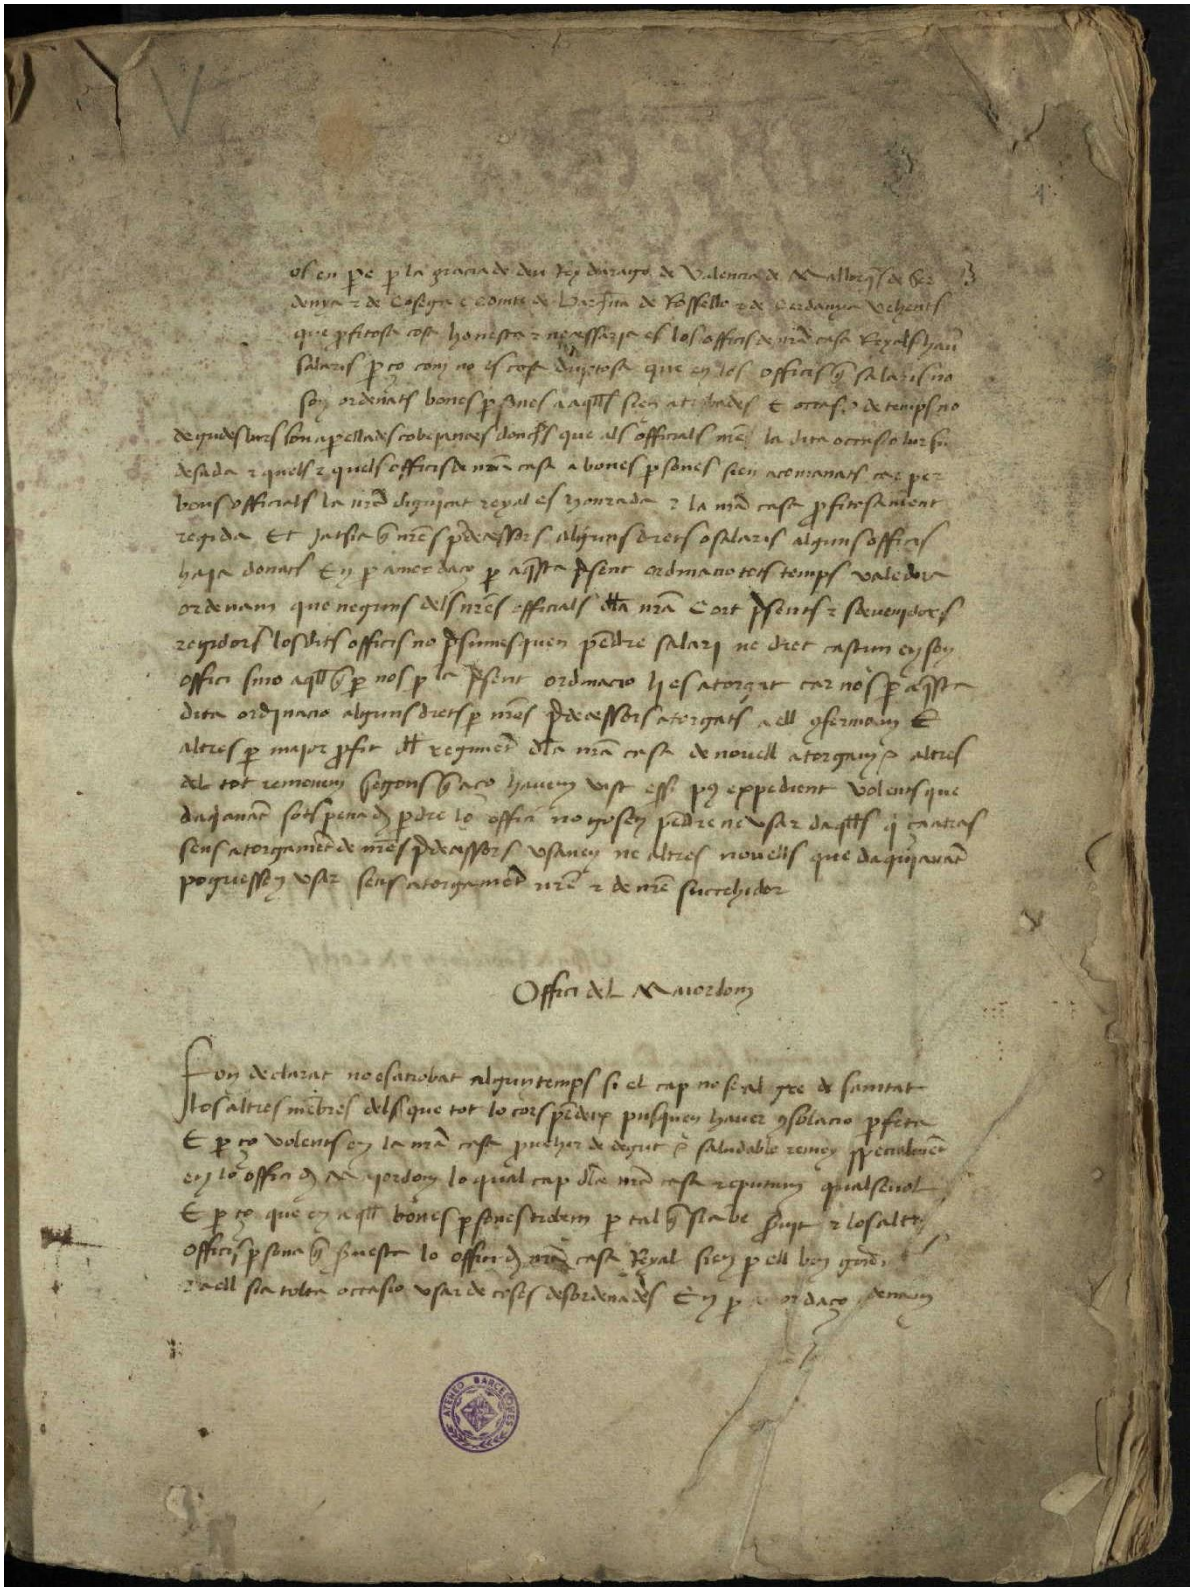 V
4
os en pe p la gracia de deu Rey darago de Valencia de Mallorqs de Ser
denya e de Cosega e Comte de Barchna de Rossello e de Cerdanya vehents
que pfitosa cosa honesta e necessaria es los officis de nra casa Reyals hau
salaris p ço com no es cosa duptosa que en los officis q salaris no
son ordenats bones psones a aqlls sien atrobades E occasio de temps no
degudes
desada e quels officis de nra casa a bones psones sien acomanats car per
bons officials la nra dignitat reyal es honrada e la nra casa pfitosament
regida Et jatsia q nres pdecessors alguns drets o salaris alguns officis
haja donats En p amor daço p aqsta psent ordinacio tots temps valedora
ordenam que neguns dels nres officials dla nra Cort psents e sdevenidors
regidors los dits officis no psumesquen pedre salari ne dret cascun en son
offici sino aqll q p nos p la psent ordinacio li es atorgat car nos p aqsta
dita ordinacio alguns drets p nres pdecessors atorgats a ell 9fermam E
altres p major pfit dl regimet dla nra casa de novell atorgam e altres
del tot removem segons q aço havem vist esser pus expedient Volents que
daqianat sots pena d pdre lo offici no gosen pedre ne usar daqlls q ça atras
sens atorgamet de nres pdecessors usaven ne altres novells que daquianat
poguessen usar sens atorgamet nre e de nre succehidor
Offici del Maiordom
Fon declarat no es atrobat algun temps si el cap no seal gre de sanitat
los altres mebres dels que tot lo cors pedeux pusquen haver 9solacio pfeta
E p ço volents en la nra casa provehir de degut e saludable remey specialmet
en lo offici d Majordom lo qual cap dla nra casa reputam qualsevol
E p ço que en aqll bones psones tridem p tal q sia be svit e los altres
officis psona q svesca lo offici d nra casa Reyal sien p ell ben
e a ell sia tolta occasio usar de coses desordenades E en p amor daço denam
ATENEO BARCELONES